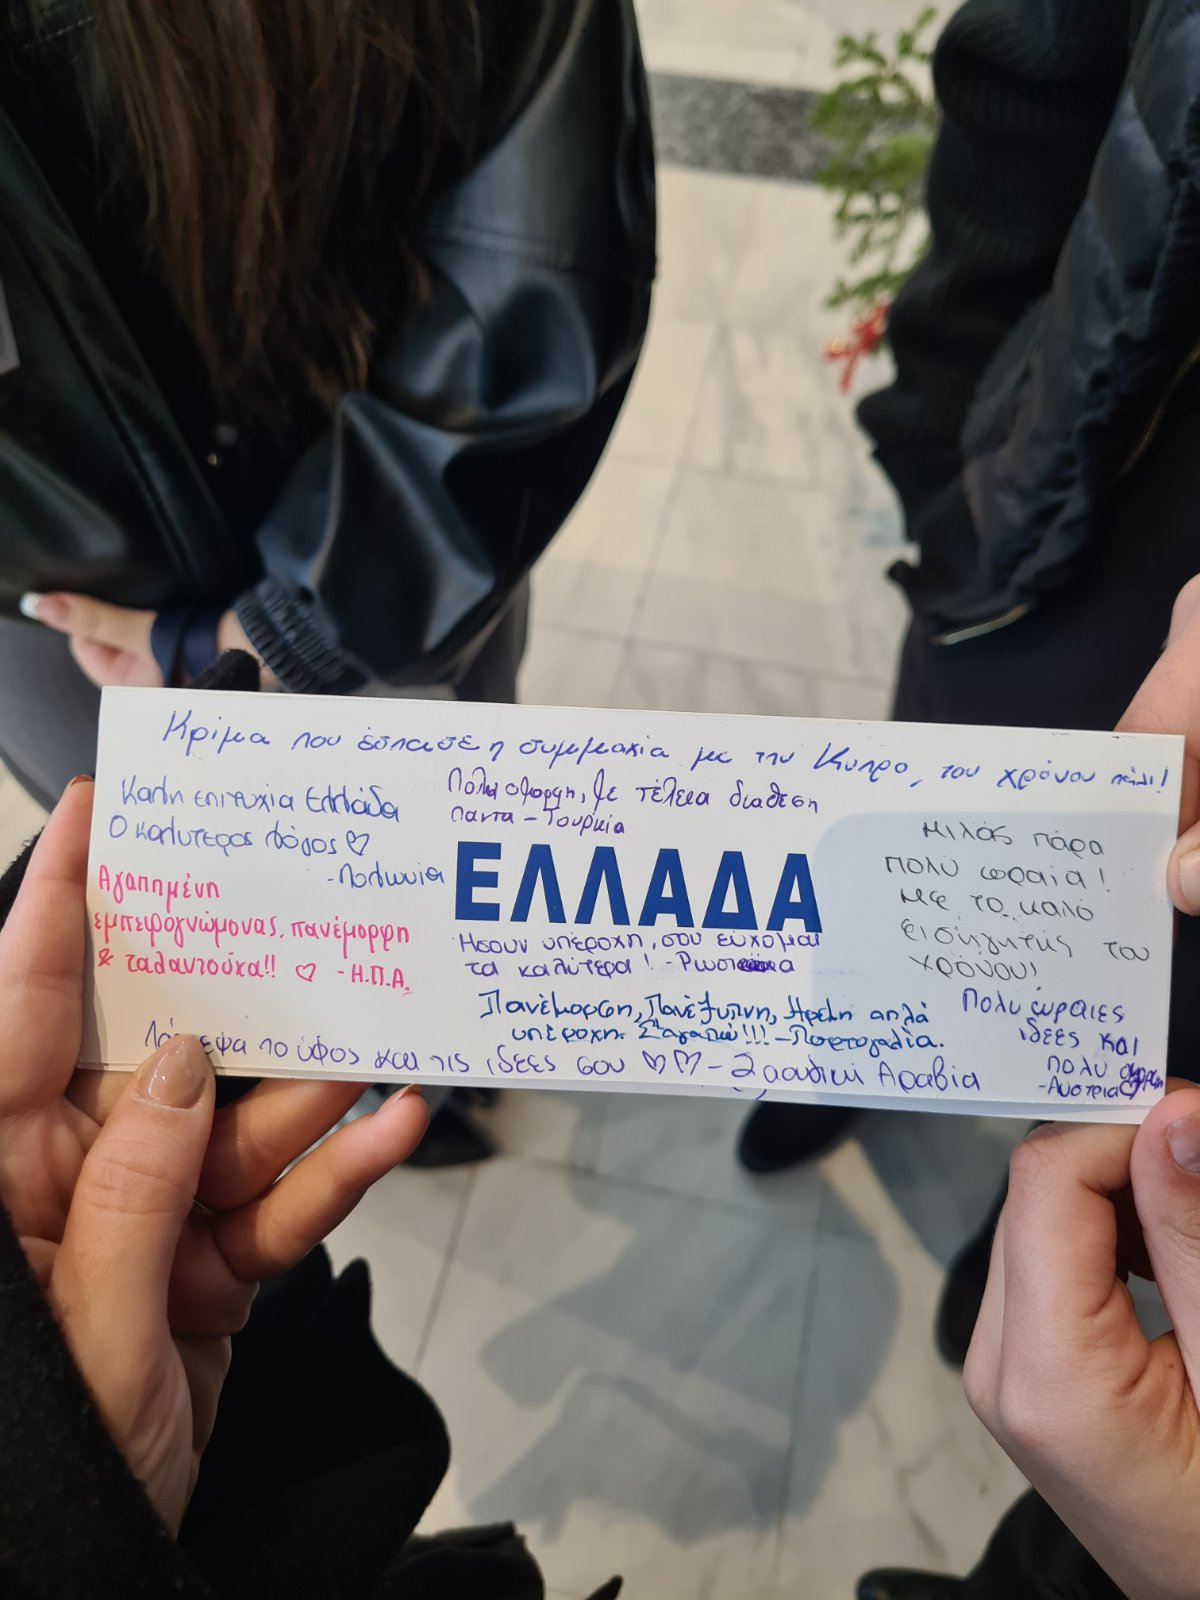 Κρίμα που έσπασε η συμμαχία με την Κύπρο, του χρόνου πάλι!
Καλή επιτυχία Ελλάδα
Ο καλύτερος λόγος ♡
-Πολωνία
Αγαπημένη
εμπειρογνώμονας, πανέμορφη
& ταλαντούχα!! ♡ -Η.Π.Α.
Πολύ όμορφη, με τέλεια διάθεση
παντα - Τουρκία
ΕΛΛΑΔΑ
Ήσουν υπέροχη, σου εύχομαι
τα καλύτερα! -Ρωσία
Πανέμορφη, Πανέξυπνη, Ήρεμη απλά
υπέροχη. Σ'αγαπώ!!! -Πορτογαλία.
Μιλάς πάρα
πολύ ωραία!
με το καλό
εισηγητής του
χρόνου!
Πολύ ωραιες
ιδέες και
πολύ
-Αυστρία
το ύφος και τις ιδέες σου ♡♡ - Σαουδική Αραβία